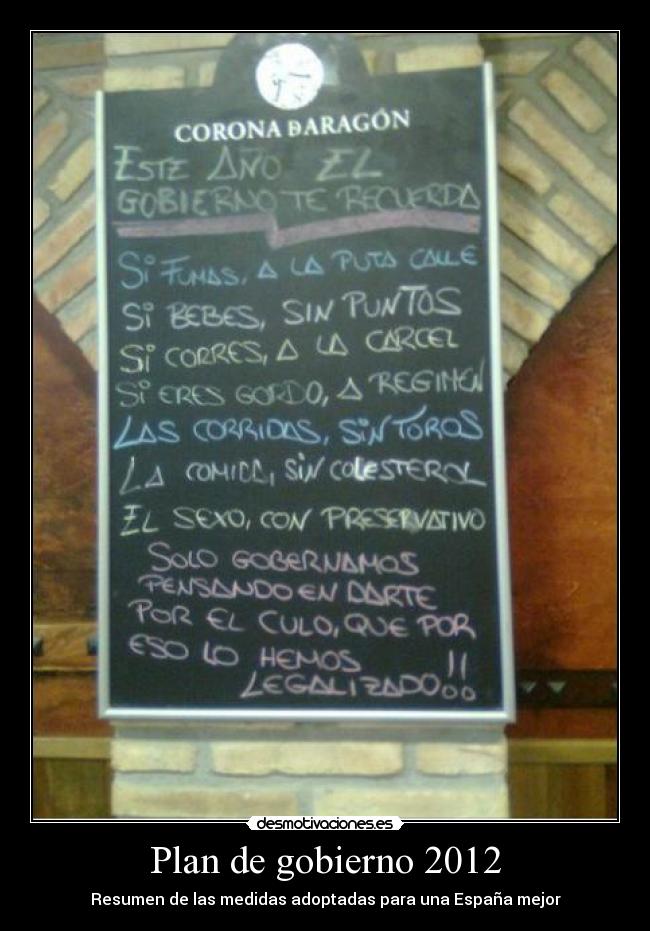 CORONA DARAGÓN
ESTE AÑO EL
GOBIERNO TE RECUERDA
Si FUMAS, A LA PUTA CALLE
Si BEBES, SIN PUNTOS
Si CORRES, A LA CARCEL
Si ERES GORDO, A REGIMEN
LAS CORRIDAS, SiN TOROS
LA COMIDA, SiN COLESTEROL
EL SEXO, CON PRESERVATIVO
SOLO GOBERNAMOS
PENSANDO EN DARTE
POR EL CULO, QUE POR
ESO LO HEMOS
LEGALIZADO!!
desmotivaciones.es
Plan de gobierno 2012
Resumen de las medidas adoptadas para una España mejor